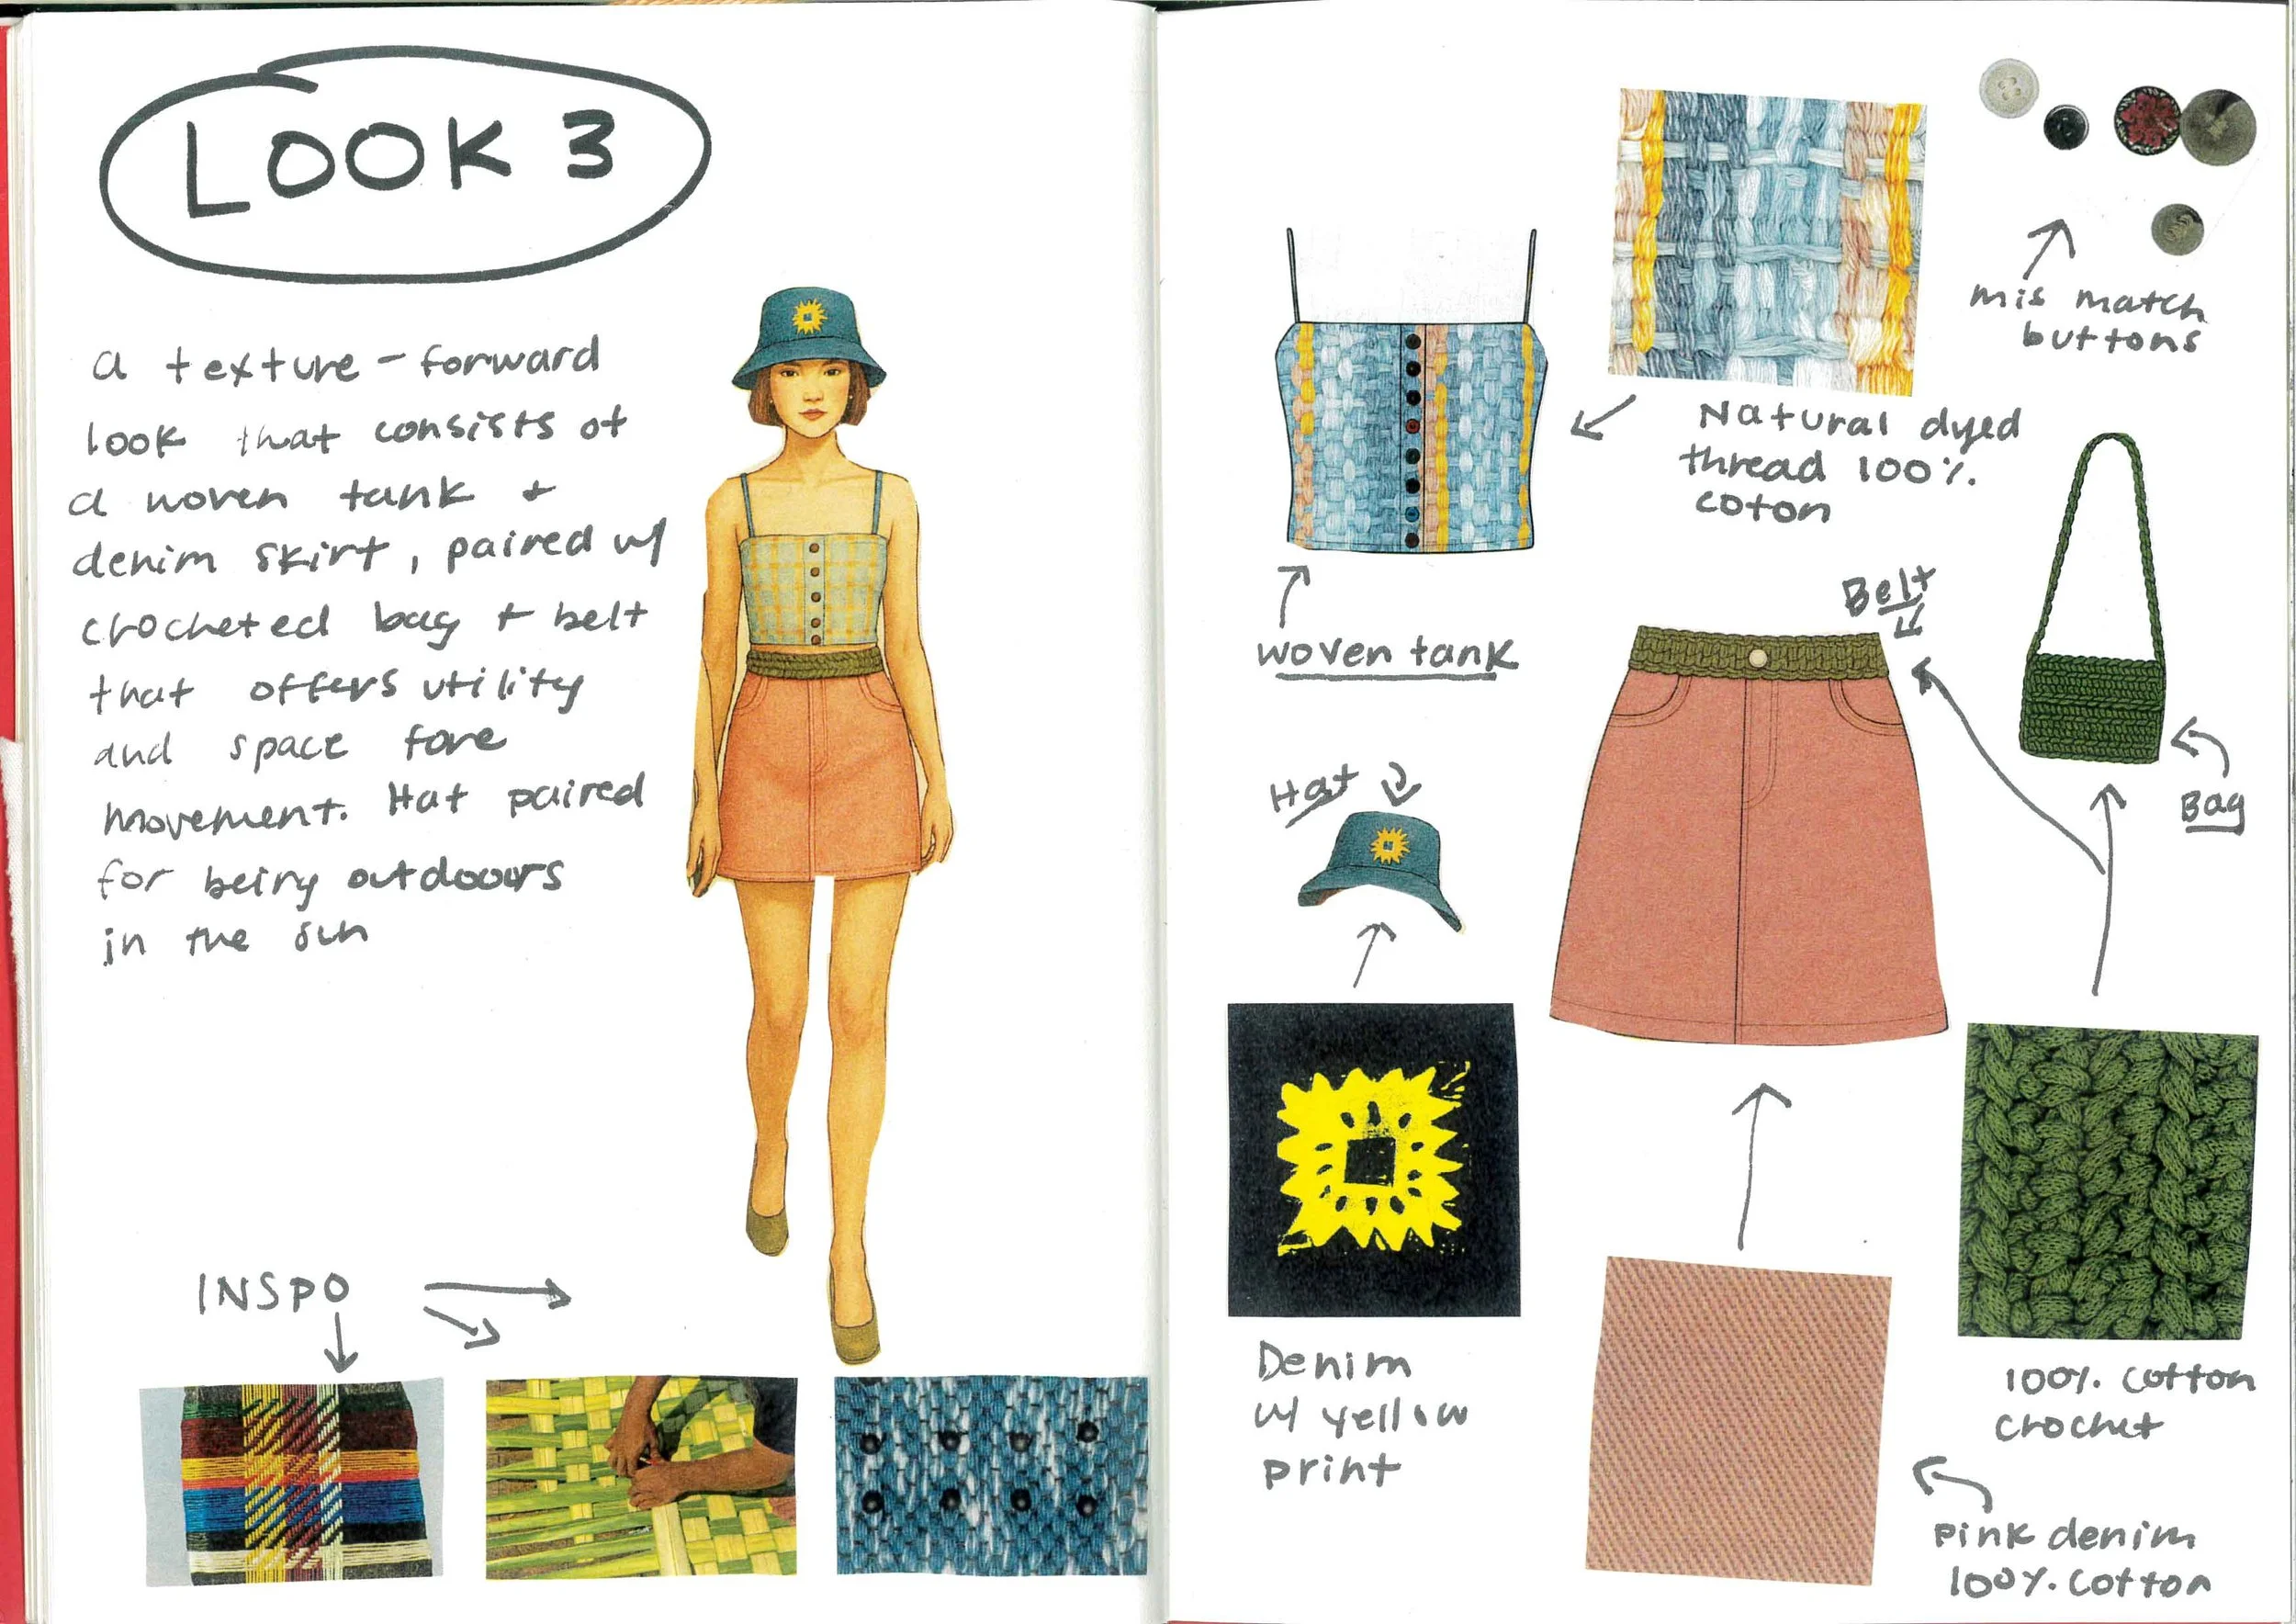 LOOK 3
a texture - forward
look that consists of
a woven tank +
denim skirt, paired w/
crocheted bag + belt
that offers utility
and space fore
movement. Hat paired
for being outdoours
in the sun
INSPO
mis match
buttons
Natural dyed
thread 100%.
coton
woven tank
Belt
Hat
Bag
Denim
w/ yellow
print
100%. cotton
crochet
pink denim
100%. cotton